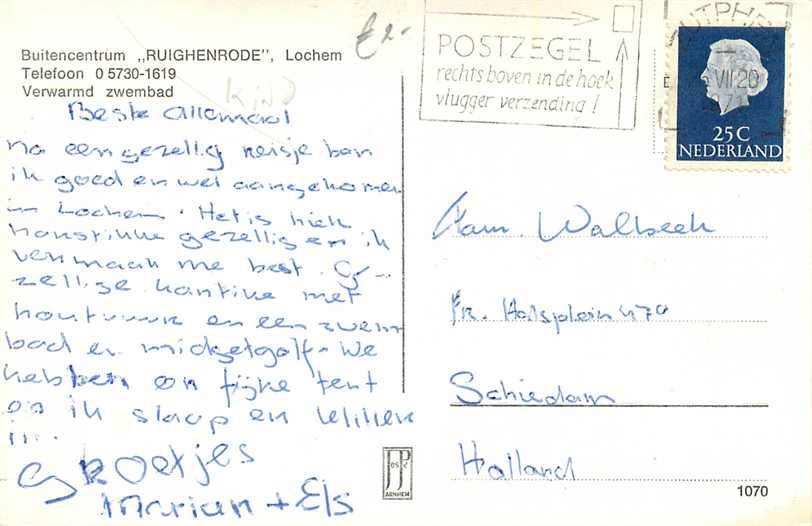 Buitencentrum „RUIGHENRODE", Lochem
Telefoon 0 5730-1619
Verwarmd zwembad
Beste allemaal
na een gezellig reisje ben
ik goed en wel aangekomen
in Lochem. Het is hier
harstikke gezellig en ik
vermaak me best. Ge-
zellige kantine met
houtvuur en een zwem
bad en midgetgolf. We
hebben een fijne tent
en ik slaap en
Groetjes
Marian + Els
POSTZEGEL
rechtsboven in de hoek
vlugger verzending!
ZUTPHEN
VII 20
25 C
NEDERLAND
Fam. Walbeek
Fr. Halsplein 47a
Schiedam
Holland
JosPé
ARNHEM
1070